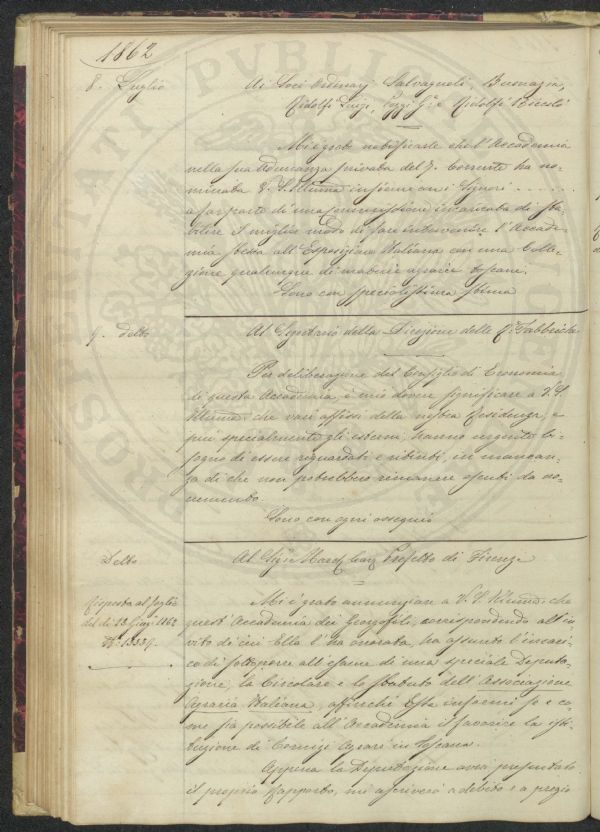 1862
8. Luglio
Ai Soci Ordinarj Salvagnoli, Buonazia,
Ridolfi Luigi, Poggi G.e e Ridolfi Niccolò
Mi è grato notificarle che l'Accademia
nella sua Adunanza privata del 7. Corrente ha no-
minata V. S. Illuma insieme con i Signori . . . . .
a far parte di una Commissione incaricata di sta-
bilire il miglior modo di fare intervenire l'Accade-
mia stessa all'Esposizione Italiana con una Colle-
zione qualunque di materie agrarie toscane.
Sono con specialissima stima
9. Detto
Al Segretario della Direzione delle R. Fabbriche
Per deliberazione del Consiglio di Economia
di questa Accademia, è mio dovere significare a V. S.
Illuma che varj affissi della nostra Residenza, e
più specialmente gli esterni, hanno urgente bi-
sogno di essere riguardati e ritinti, in mancan-
za di che non potrebbero rimanere esenti da no-
cumento.
Sono con ogni ossequio
Detto
Al Sige March. Prefetto di Firenze
Risposta al foglio
del dì 23 Giug. 1862
N.° 13339.
Mi è grato annunziare a V. S. Illuma che
quest'Accademia dei Georgofili, corrispondendo all'in-
vito di cui Ella l'ha onorata, ha assunto l'incari-
co di sottoporre all'esame di una speciale Deputa-
zione, la Circolare e lo Statuto dell'Associazione
Agraria Italiana, affinchè Essa informi se e co-
me sia possibile all'Accademia il favorire la isti-
tuzione di Comizj Agrari in Toscana.
Appena la Deputazione avrà presentato
il proprio Rapporto, mi ascriverò a debito e a pregio